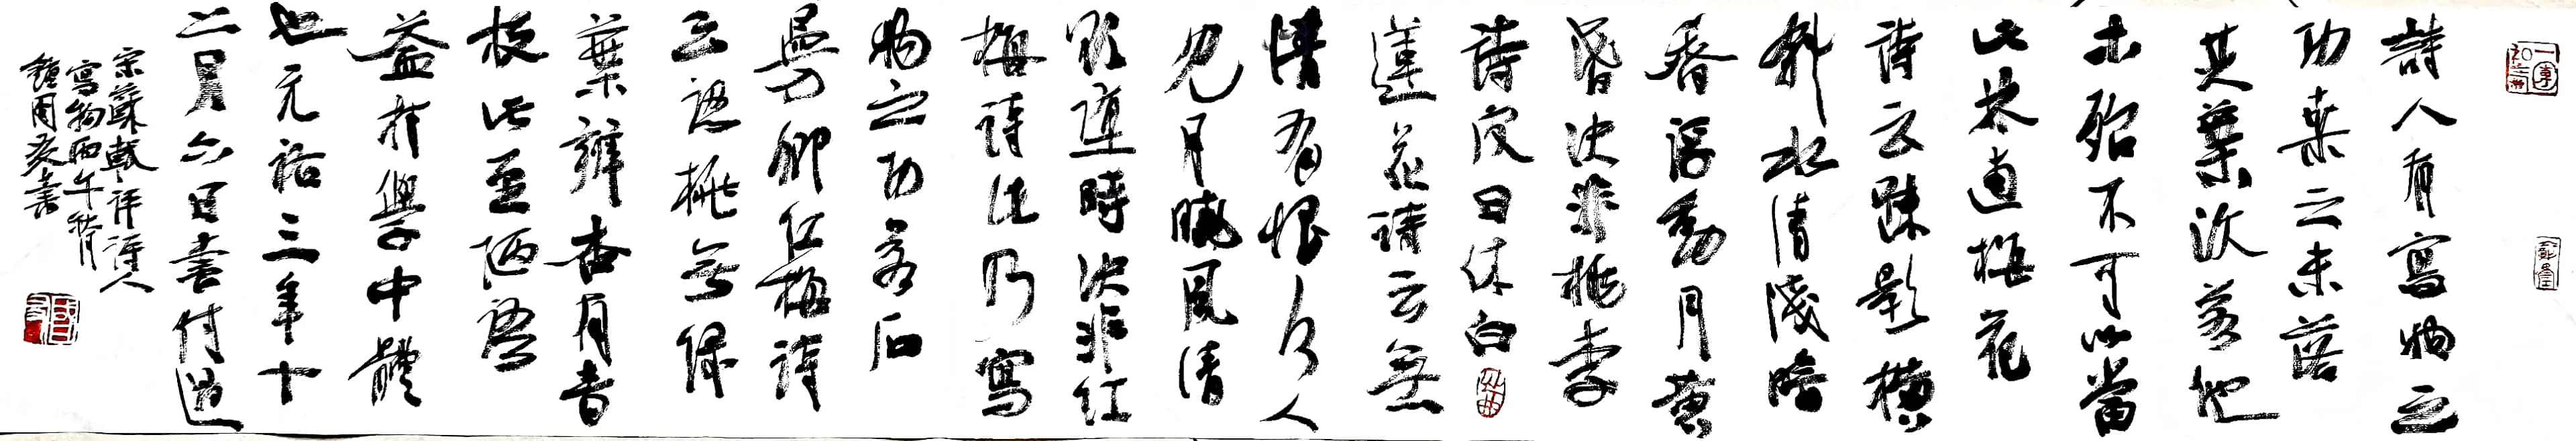 詩人有寫物之
功桒之未落
其葉沃若他
木殆不可以當
此林逋梅花
詩云疎影橫
斜水清淺暗
香浮動月黄
昏决非桃李
詩皮日休白
蓮花詩云無
情有恨何人
見月曉風清
欲墮時决非红
梅詩此乃寫
物之功若石
曼卿红梅詩
云認桃無緑
葉辨杏有青
枝此至陋語
蓋村學中體
也元祐三年十
二月六日書付過
宋蘇軾評詩人
寫物丙午
書